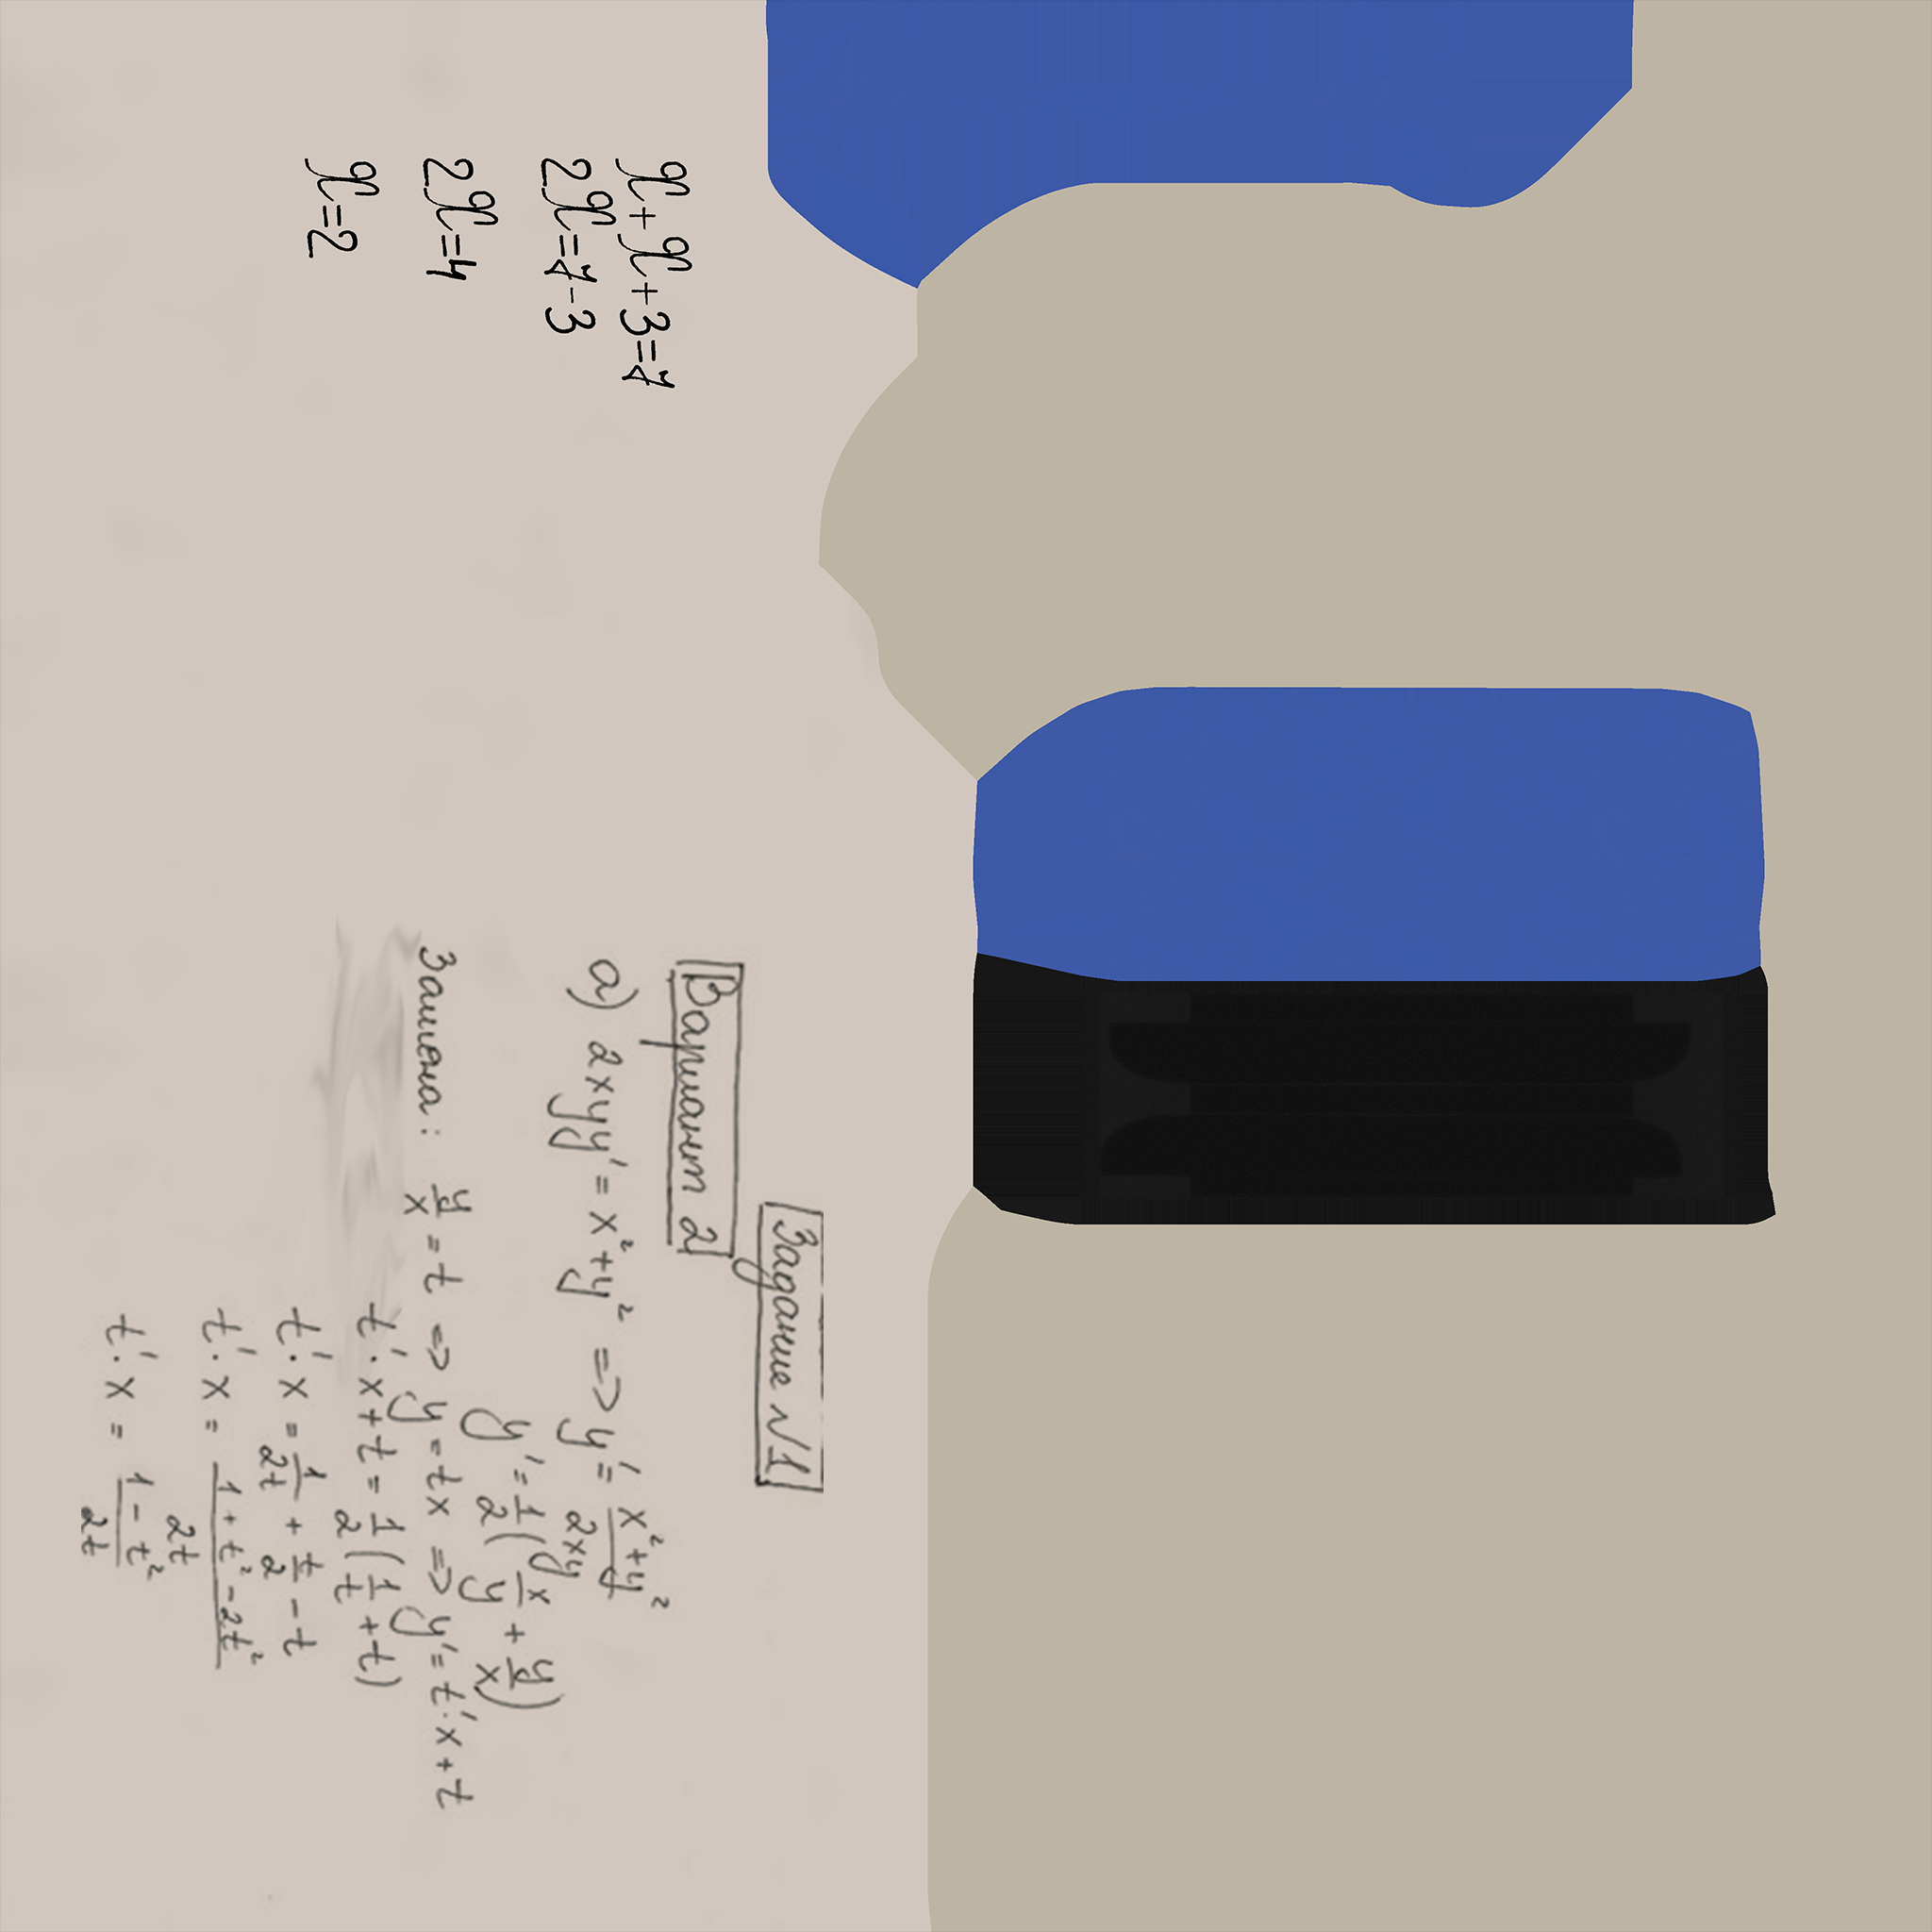 x+x+3=7
2x=7-3
2x=4
x=2
Задание №1
Вариант 2
а) 2xyy' = x²+y² => y' = (x²+y²)/(2xy)
y' = 1/2 (x/y + y/x)
Замена: y/x = t => y = tx => y' = t'·x+t
t'·x+t = 1/2 (1/t + t)
t'·x = 1/(2t) + t/2 - t
t'·x = (1+t²-2t²)/(2t)
t'·x = (1-t²)/(2t)